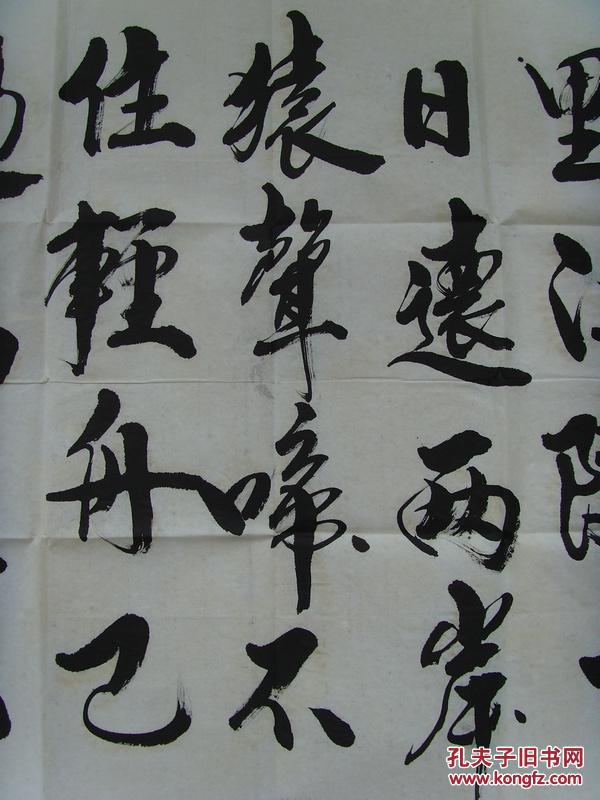 里江陵
日還两岸
猿聲啼不
住輕舟已
孔夫子旧书网
www.kongfz.com